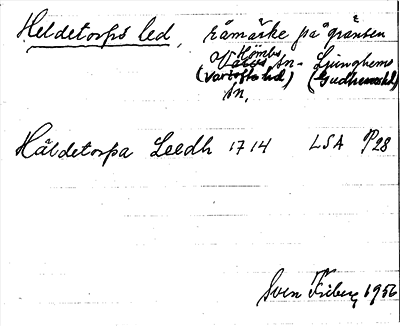 Heldetorps led, råmärke på gränsen
Hömbs
Sn- Ljunghems
(Vartofta hd) (Gudhems hd)
Sn,
Häldetorpa Leedh 1714 LSA P28
Sven Friberg 1956